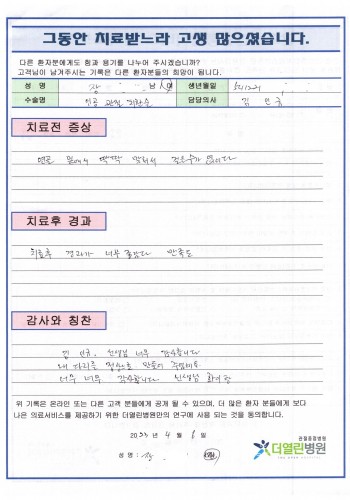 그동안 치료받느라 고생 많으셨습니다.
다른 환자분에게도 힘과 용기를 나누어 주시겠습니까?
고객님이 남겨주시는 기록은 다른 환자분들의 희망이 됩니다.
성 명 장 생년월일
수술명 인공 관절 치환술 담당의사 김 민국
치료전 증상
치료후 경과
치료후 경과가 너무 좋았다 만족도
감사와 칭찬
김 민국. 선생님 너무 감사합니다
내 다리를 정상으로 만들어 주셨어요
너무 너무 감사합니다 선생님 화이팅
위 기록은 온라인 또는 다른 고객 분들에게 공개 될 수 있으며, 더 많은 환자 분들에게 보다
나은 의료서비스를 제공하기 위한 더열린병원만의 연구에 사용 되는 것을 동의합니다.
년 4 월 일
성 명 : 장
관절중점병원
더열린병원